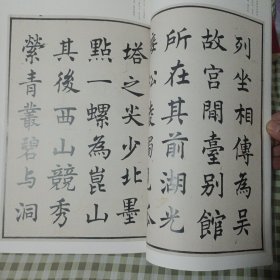 列坐相傳為吳
故宮閒臺別館
所在其前湖光
接松陵獨見孤
塔之尖少北墨
點一螺為崑山
其後西山競秀
縈青叢碧与洞